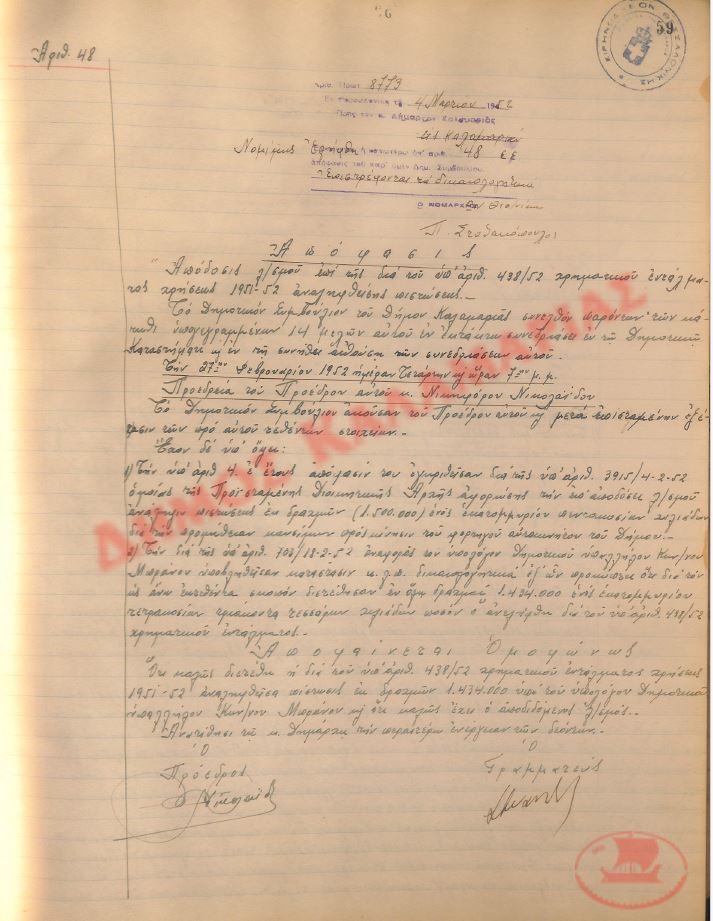 59
ΕΙΡΗΝΟΔΙΚΕΙΟΝ ΘΕΣΣΑΛΟΝΙΚΗΣ
Ἀριθ. 48
Ἀριθ. Πρωτ. 8773
Ἐν Θεσσαλονίκῃ τῇ 4 Μαρτίου 1952
Πρὸς τὸν κ. Δήμαρχον
Καλαμαριάν
Νομίμως Ἐλήφθη ἡ κατωτέρω ὑπ' ἀριθ. 48 ἐ.ἔ.
ἀπόφασις τοῦ καθ' ὑμᾶς Δημ. Συμβουλίου
Ἐπιστρέφονται τὰ δικαιολογητικά
Ο ΝΟΜΑΡΧΗΣ
Π. Σταθακόπουλος
Ἀπόφασις
"Ἀπόδοσις λ/σμοῦ ἐπὶ τῆς διὰ τοῦ ὑπ' ἀριθ. 438/52 χρηματικοῦ ἐντάλμα-
τος χρήσεως 1951-52 ἀναληφθείσης πιστώσεως.-
Τὸ Δημοτικὸν Συμβούλιον τοῦ Δήμου Καλαμαριᾶς συνελθὸν παρόντων τῶν κά-
τωθι ὑπογεγραμμένων 14 μελῶν αὐτοῦ ἐν ἐκτάκτῳ συνεδριάσει ἐν τῇ Δημοτικῷ
Καταστήματι κ' ἐν τῇ συνήθει αἰθούσῃ τῶν συνεδριάσεων αὐτοῦ.
Τὴν 27ην Φεβρουαρίου 1952 ἡμέραν Τετάρτην κ' ὥραν 7ην μ.μ.
Προεδρείᾳ τοῦ Προέδρου αὐτοῦ κ. Νικηφόρου Νικολαΐδου
Τὸ Δημοτικὸν Συμβούλιον ἀκοῦσαν τοῦ Προέδρου αὐτοῦ κ' μετὰ ἐπισταμένην ἐξέ-
τασιν τῶν πρὸ αὐτοῦ τεθέντων στοιχείων.-
Ἔχον δὲ ὑπ' ὄψει:
1) Τὴν ὑπ' ἀριθ. 4 ἐ. ἔτους ἀπόφασίν του ἐγκριθεῖσαν διὰ τῆς ὑπ' ἀριθ. 3915/4-2-52
ὁμοίας τῆς Προϊσταμένης Διοικητικῆς Ἀρχῆς ἀφορώσης τὴν ἐπ' ἀποδόσει λ/σμοῦ
ἀνάληψιν πιστώσεως ἐκ δραχμῶν (1.500.000) ἑνὸς ἑκατομμυρίου πεντακοσίων χιλιάδων
διὰ τὴν προμήθειαν καυσίμων πρὸς κίνησιν τοῦ φορτηγοῦ αὐτοκινήτου τοῦ Δήμου.-
2) Τὴν διὰ τῆς ὑπ' ἀριθ. 703/18-2-52 ἀναφορᾶς τοῦ ὑπολόγου Δημοτικοῦ ὑπαλλήλου Κων/νου
Μπράνου ὑποβληθεῖσαν κατάστασιν κ.λ.π. δικαιολογητικὰ ἐξ ὧν προκύπτει ὅτι διὰ τὸν
ὡς ἄνω σκοπὸν διετέθησαν ἐν ὅλῳ δραχμαὶ 1.434.000 ἑνὸς ἑκατομμυρίου
τετρακοσίων τριάκοντα τεσσάρων χιλιάδων ποσὸν ὃ ἀνελήφθη διὰ τοῦ ὑπ' ἀριθ. 438/52
χρηματικοῦ ἐντάλματος.-
Ἀποφαίνεται Ὁμοφώνως
Ὅτι καλῶς διετέθη ἡ διὰ τοῦ ὑπ' ἀριθ. 438/52 χρηματικοῦ ἐντάλματος χρήσεως
1951-52 ἀναληφθεῖσα πίστωσις ἐκ δραχμῶν 1.434.000 ὑπὸ τοῦ ὑπολόγου Δημοτικοῦ
ὑπαλλήλου Κων/νου Μπράνου κ' ὅτι καλῶς ἔχει ὁ ἀποδιδόμενος λ/σμός.-
Ἀνατίθησι τῷ κ. Δημάρχῳ τὴν περαιτέρω ἐνέργειαν τῶν δεόντων.-
Ὁ Ὁ
Πρόεδρος Γραμματεύς
ΔΗΜΟΣ ΚΑΛΑΜΑΡΙΑΣ